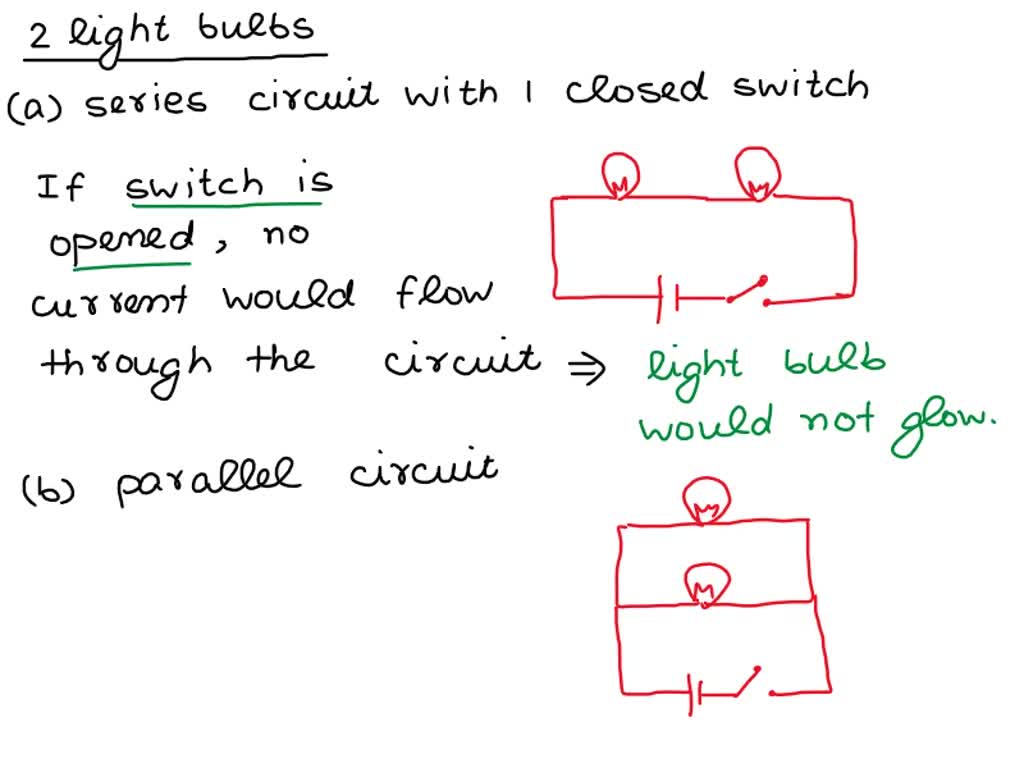 2 light bulbs
(a) series circuit with 1 closed switch
If switch is
opened, no
current would flow
through the circuit ⇒ light bulb
would not glow.
(b) parallel circuit